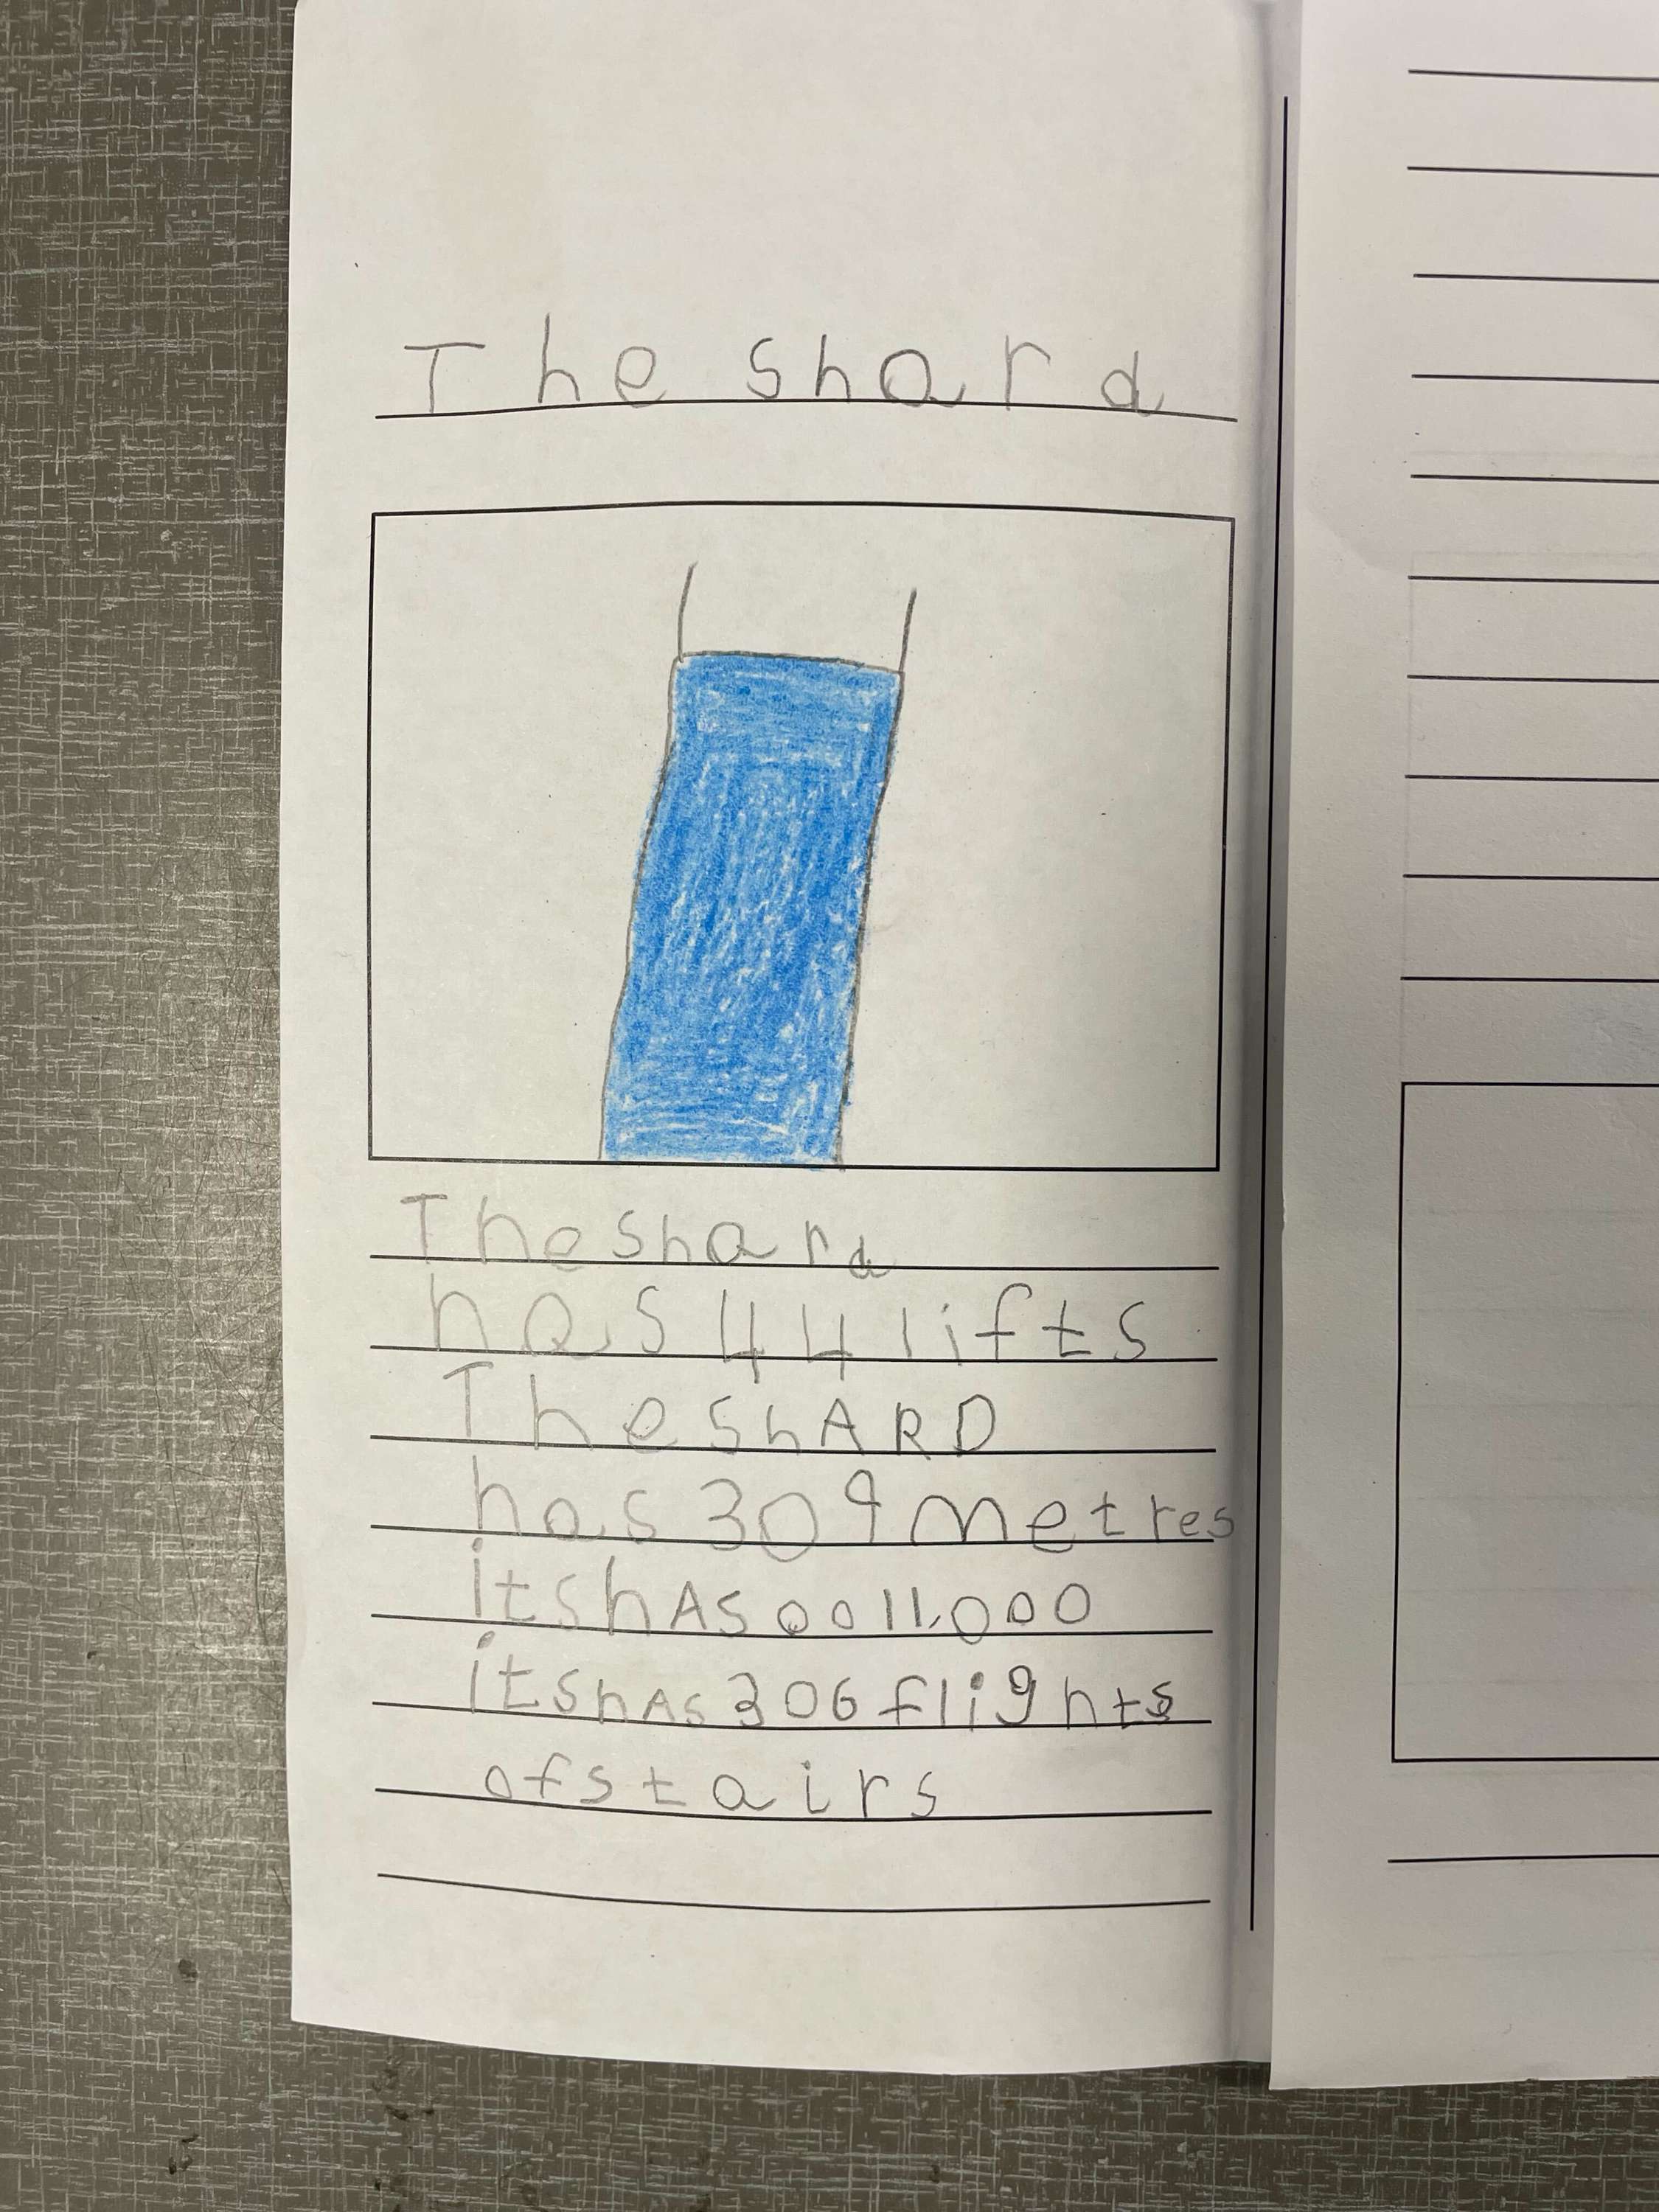 The shard
The shard
has 44 lifts
The shARD
has 309 metres
its hAs 0011,000
its hAs 306 flights
of stairs